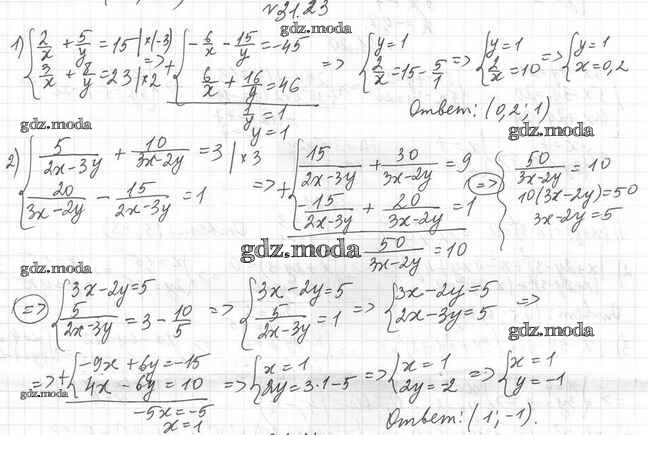 №31.23
gdz.moda
1) { 2/x + 5/y = 15 | ×(-3)
3/x + 8/y = 23 | ×2
=> + { -6/x - 15/y = -45
6/x + 16/y = 46
1/y = 1
y = 1
=> { y = 1
2/x = 15 - 5/1
=> { y = 1
2/x = 10
=> { y = 1
x = 0,2
Ответ: (0,2; 1)
gdz.moda
gdz.moda
2) { 5/(2x-3y) + 10/(3x-2y) = 3 | ×3
20/(3x-2y) - 15/(2x-3y) = 1
=> + { 15/(2x-3y) + 30/(3x-2y) = 9
-15/(2x-3y) + 20/(3x-2y) = 1
50/(3x-2y) = 10
=> 50/(3x-2y) = 10
10(3x-2y) = 50
3x-2y = 5
gdz.moda
gdz.moda
=> { 3x-2y = 5
5/(2x-3y) = 3 - 10/5
=> { 3x-2y = 5
5/(2x-3y) = 1
=> { 3x-2y = 5
2x-3y = 5
=>
gdz.moda
=> + { -9x + 6y = -15
4x - 6y = 10
-5x = -5
x = 1
=> { x = 1
2y = 3·1-5
=> { x = 1
2y = -2
=> { x = 1
y = -1
gdz.moda
Ответ: (1; -1).